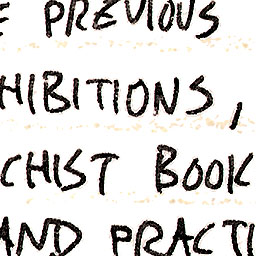 E PREVIOUS
HIBITIONS,
CHIST BOOK
AND PRACTI